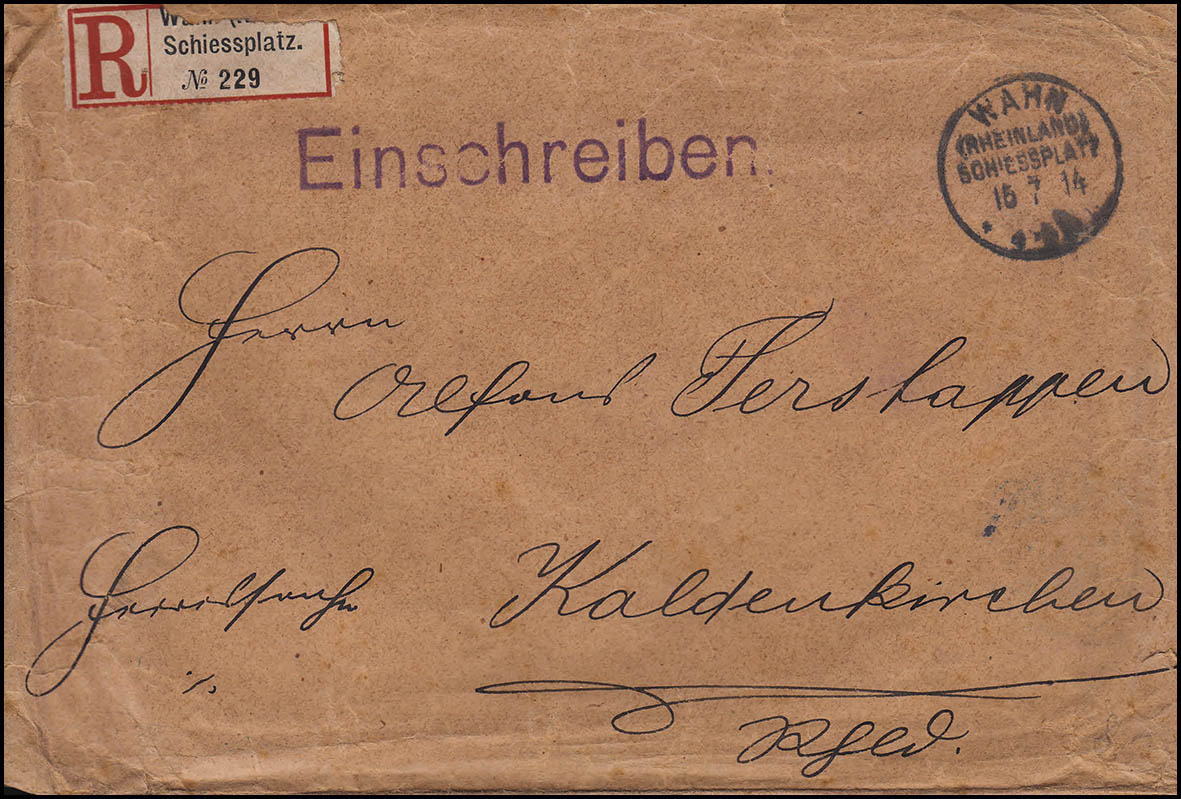 Schiessplatz.
R
№ 229
Einschreiben.
WAHN
(RHEINLAND)
SCHIESSPLATZ
7 14
Herrn
Alfons Terstappen
Heeressache
Kaldenkirchen
Rhld.